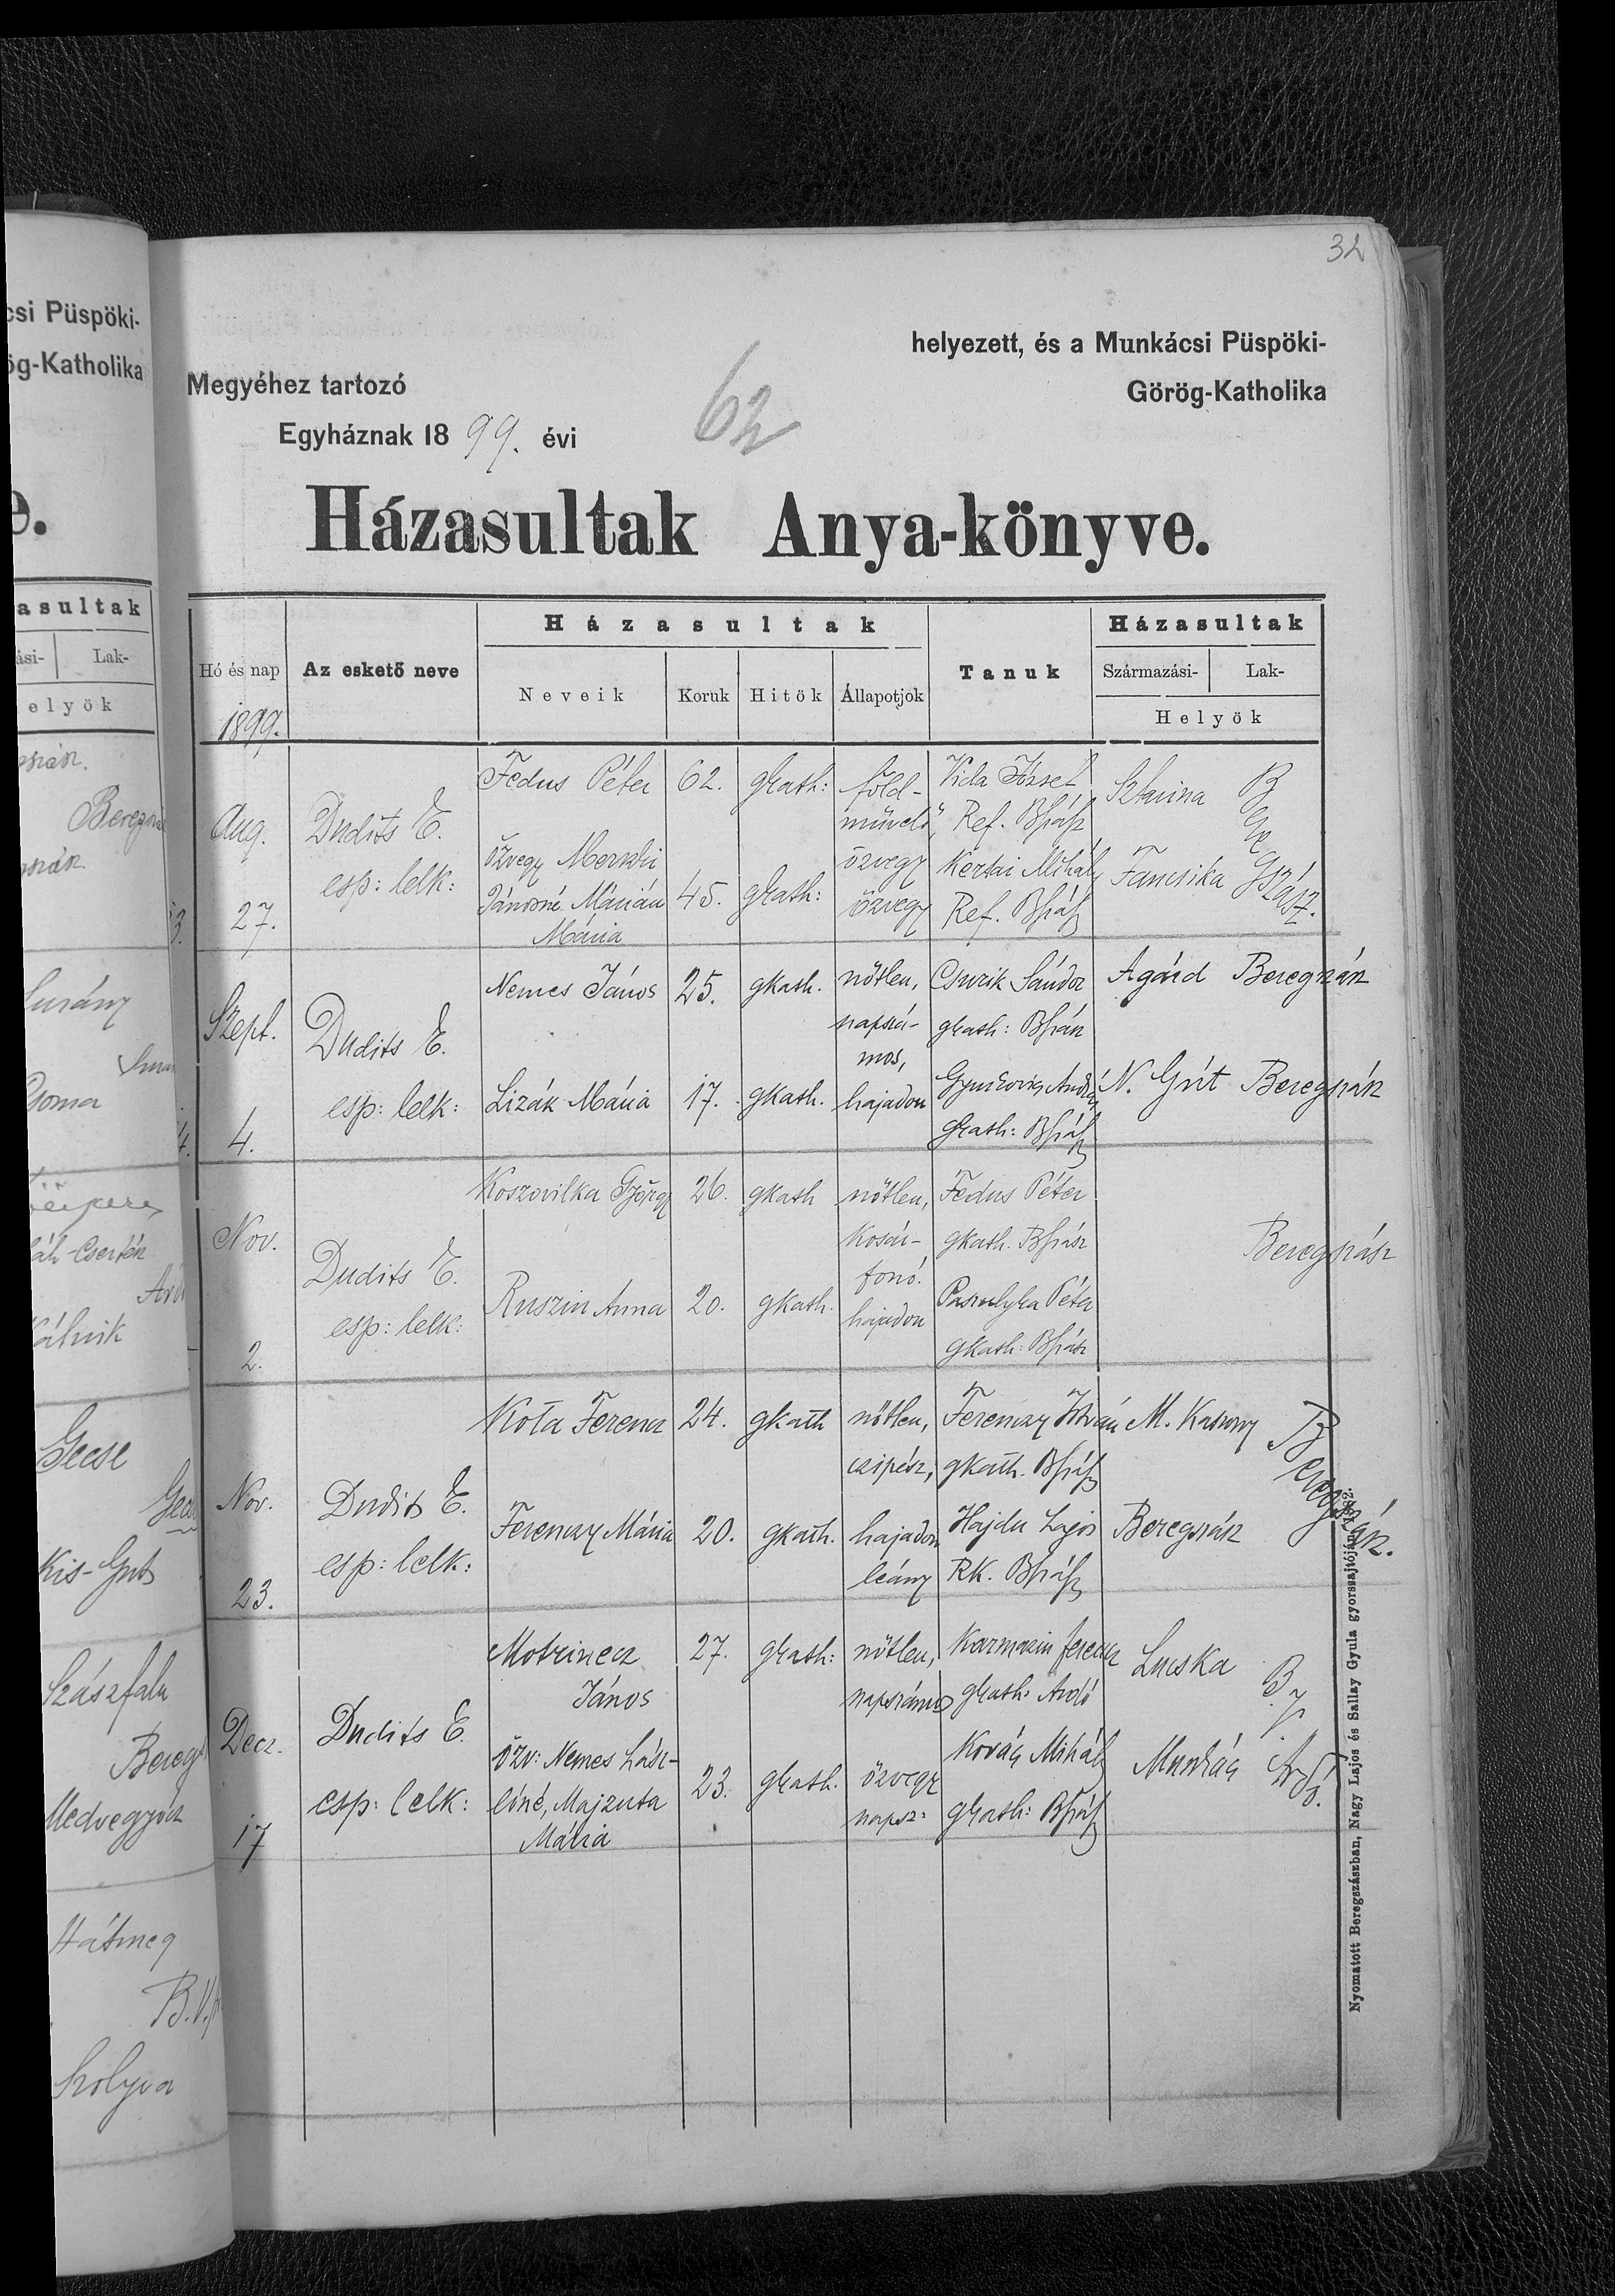 32
csi Püspöki-
ög-Katholika
helyezett, és a Munkácsi Püspöki-
Megyéhez tartozó
Görög-Katholika
Egyháznak 1899. évi
62
e.
Házasultak Anya-könyve.
asultak
ási- Lak-
elyök
Hó és nap
Az eskető neve
Házasultak
Neveik
Koruk
Hitök
Állapotjok
Tanuk
Házasultak
Származási- Lak-
Helyök
1899.
Aug.
27.
Dudits E.
esp: lelk:
Fedus Péter 62. gkath: föld-
művelő,
özvegy
Vida József
Ref. Bszász
Sztarina
özvegy
Jánosné Márián
Mária
45. gkath: özvegy
Kertai Mihály
Ref. Bszász
Fancsika
B
Szept.
4.
Dudits E.
esp: lelk:
Nemes János 25. gkath. nőtlen,
napszá-
mos,
Csurik Sándor
gkath: Bszász
Agárd Beregszász
Lizák Mária 17. gkath. hajadon
gkath: Bszász
N. Gút Beregszász
Nov.
2.
Dudits E.
esp: lelk:
Koszovilka György 26. gkath nőtlen,
kosár-
fonó.
Fedus Péter
gkath. Bszász
Beregszász
Ruszin Anna 20. gkath. hajadon
Paszulyka Péter
gkath. Bszász
Nov.
23.
Dudits E.
esp: lelk:
Kota Ferencz 24. gkath nőtlen,
czipész,
Ferenczy István
gkath. Bszász
M. Kaszony
Beregszász.
Ferenczy Mária 20. gkath. hajadon
leány
Hajdu Lajos
RK. Bszász
Beregszász
Decz.
17
Dudits E.
esp: lelk:
Motrinecz
János
27. gkath: nőtlen,
napszámos
Karmazin ferencz
gkath. Ardó
Lucska
özv: Nemes Lász-
lóné, Majzuta
Mária
23. gkath. özvegy
napsz:
Kovács Mihály
gkath: Bszász
Munkács
Ardó.
Nyomatott Beregszászban, Nagy Lajos és Sallay Gyula gyorssajtóján 1882.
Gecse
Kis-Gut
Szászfalu
Bereg
Hátmeg
Szolyva